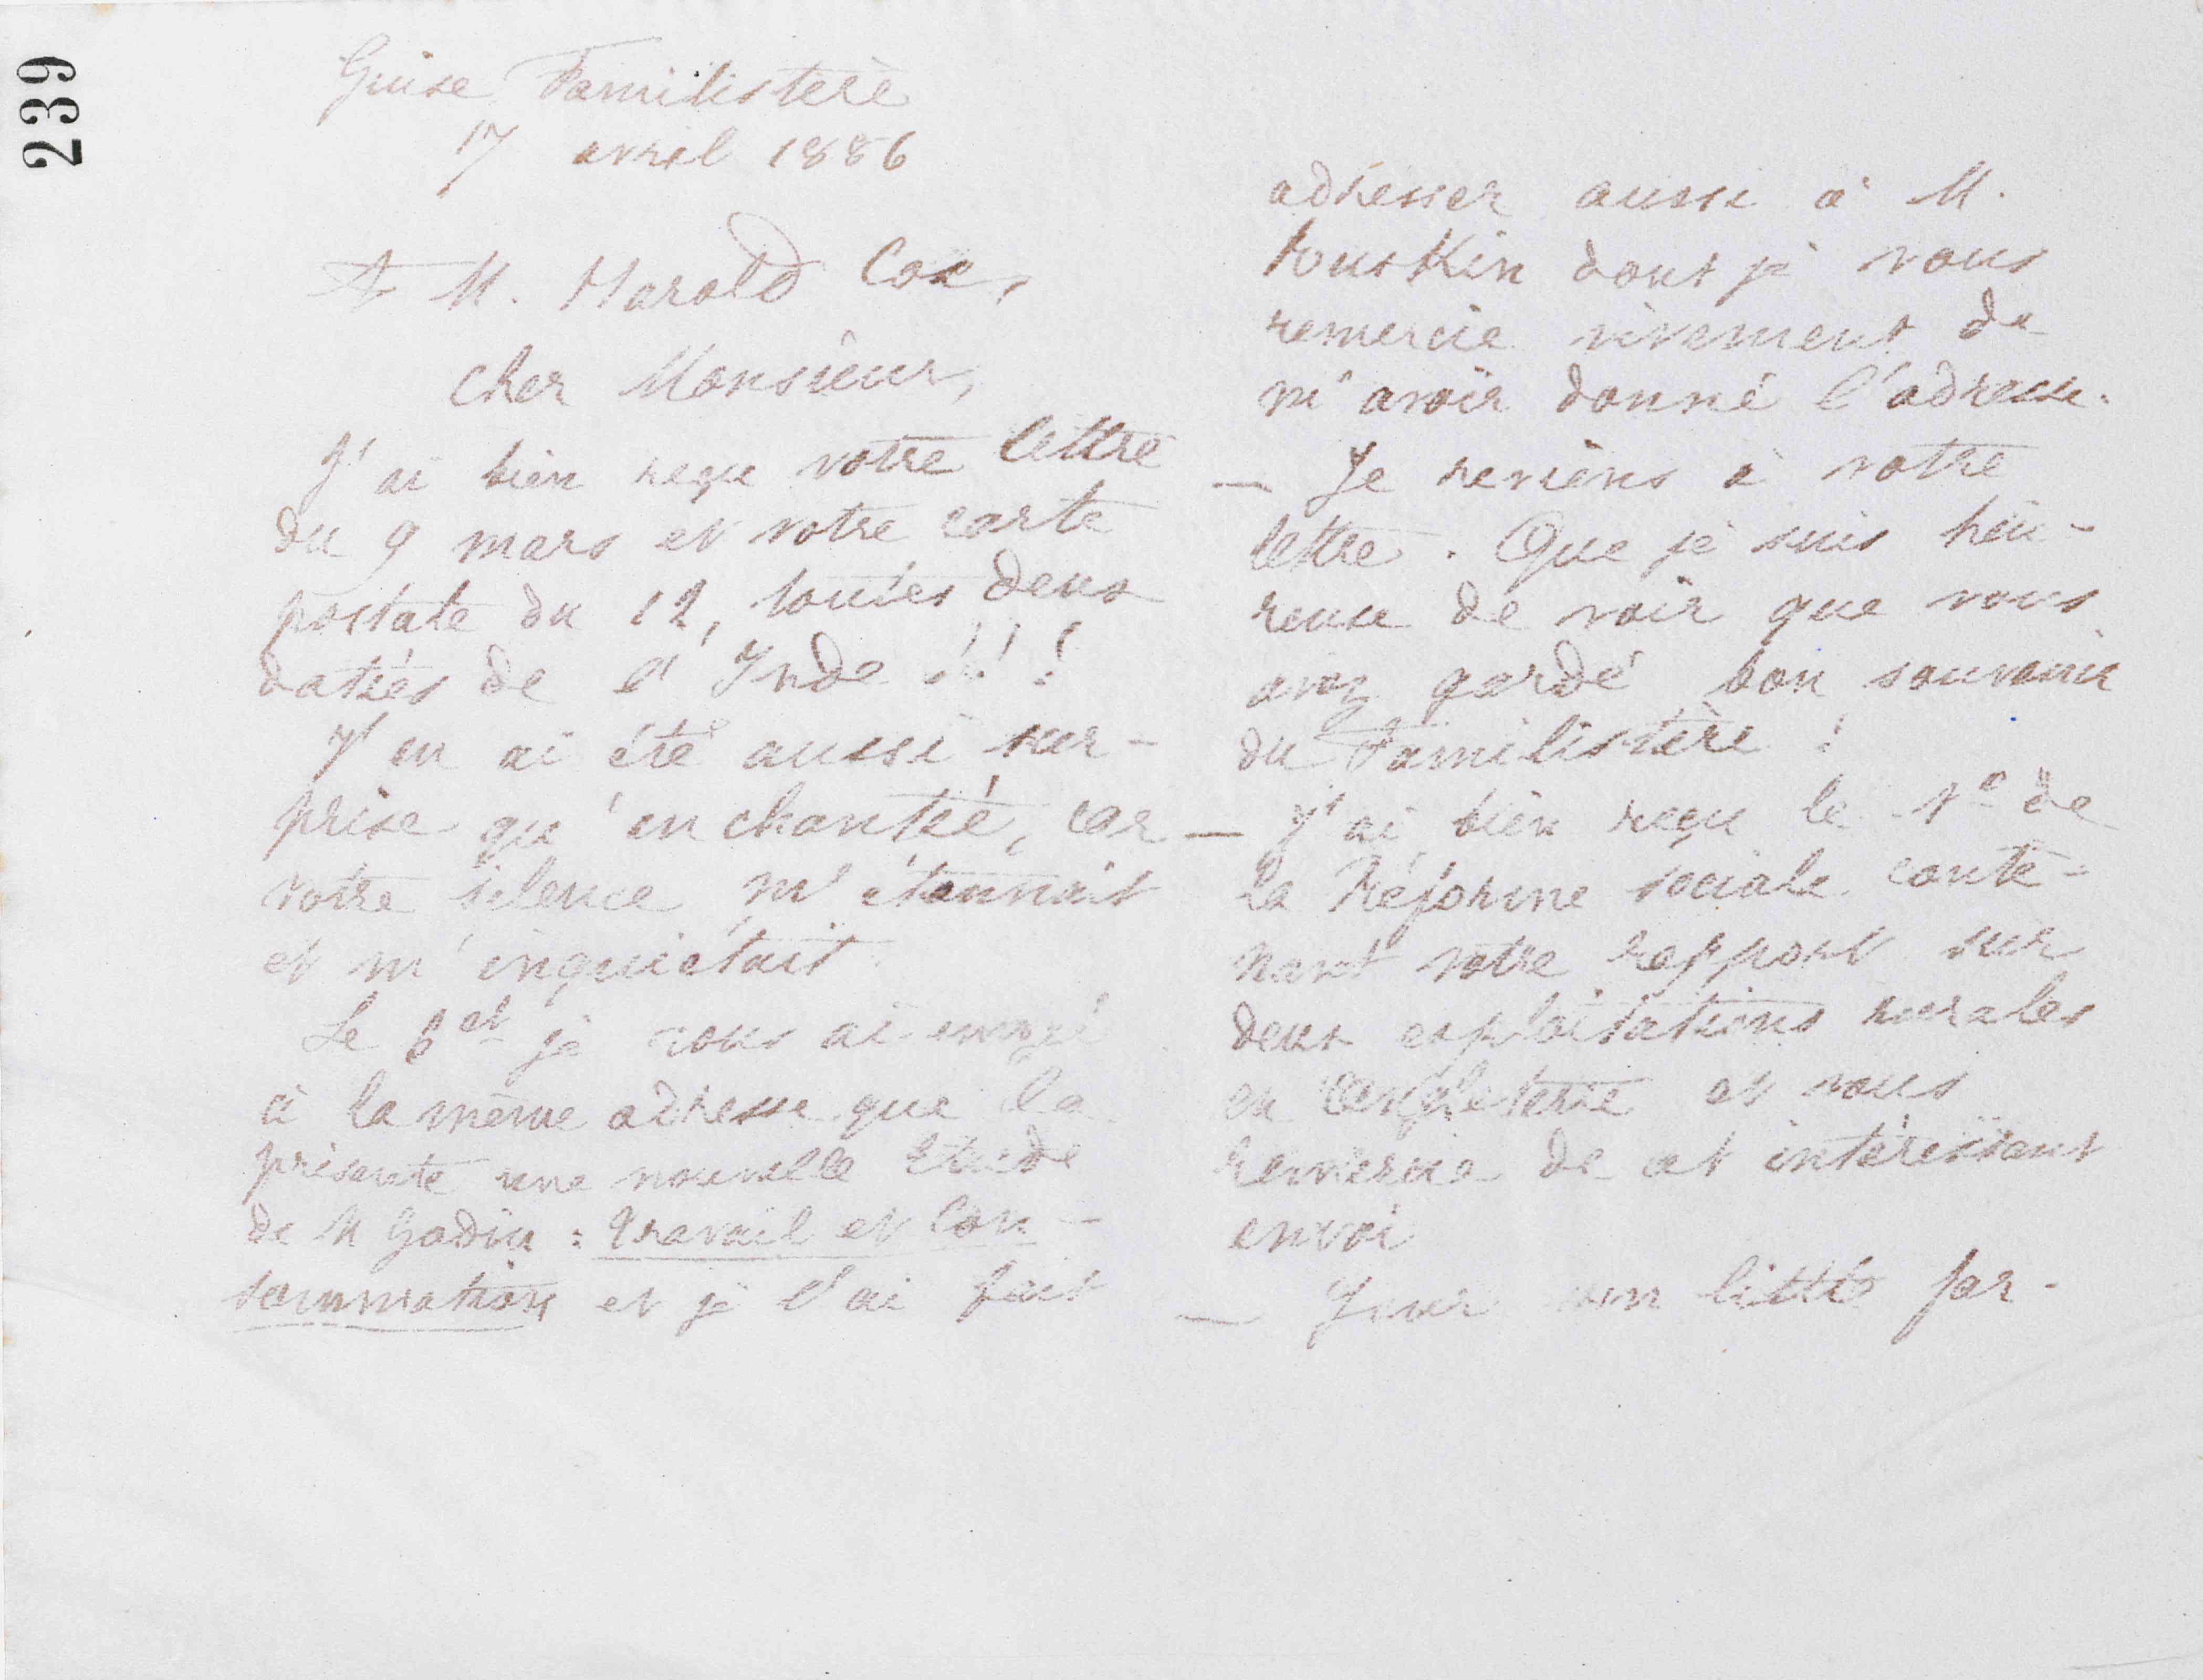 239
Guise Familistère
17 avril 1886
A M. Harold Cox,
Cher Monsieur,
J'ai bien reçu votre lettre
du 9 mars et votre carte
postale du 12, toutes deux
datées de l'Inde !!!
J'en ai été aussi sur-
prise qu'enchantée, car
votre silence m'étonnait
et m'inquiétait.
Le 6 ct je vous ai envoyé
à la même adresse que la
présente une nouvelle Etude
de M Godin : Travail et Con-
sommation et je l'ai fait
adresser aussi à M.
dont je vous
remercie vivement de
m'avoir donné l'adresse.
— Je reviens à votre
lettre. Que je suis heu-
reuse de voir que vous
avez gardé bon souvenir
du Familistère !
— J'ai bien reçu le N° de
la Réforme sociale conte-
nant votre rapport sur
deux exploitations rurales
en Angleterre et vous
remercie de cet intéressant
envoi
— little for-